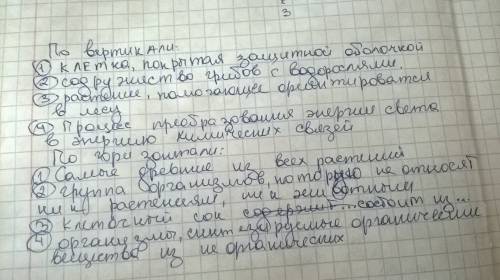 3
По вертикали:
① клетка, покрытая защитной оболочкой
② содружество грибов с водорослями.
③ растение, помогающее ориентироватся
в лесу
④ Процес преобразования энергии света
в энергию химических связей
По горизонтали:
① Самые древние из всех растений
② группа организмов, которую не относят
ни к растениям, ни к животным
③ клеточный сок состоит из...
④ организмы, синтезируемые органические
вещества из не органических